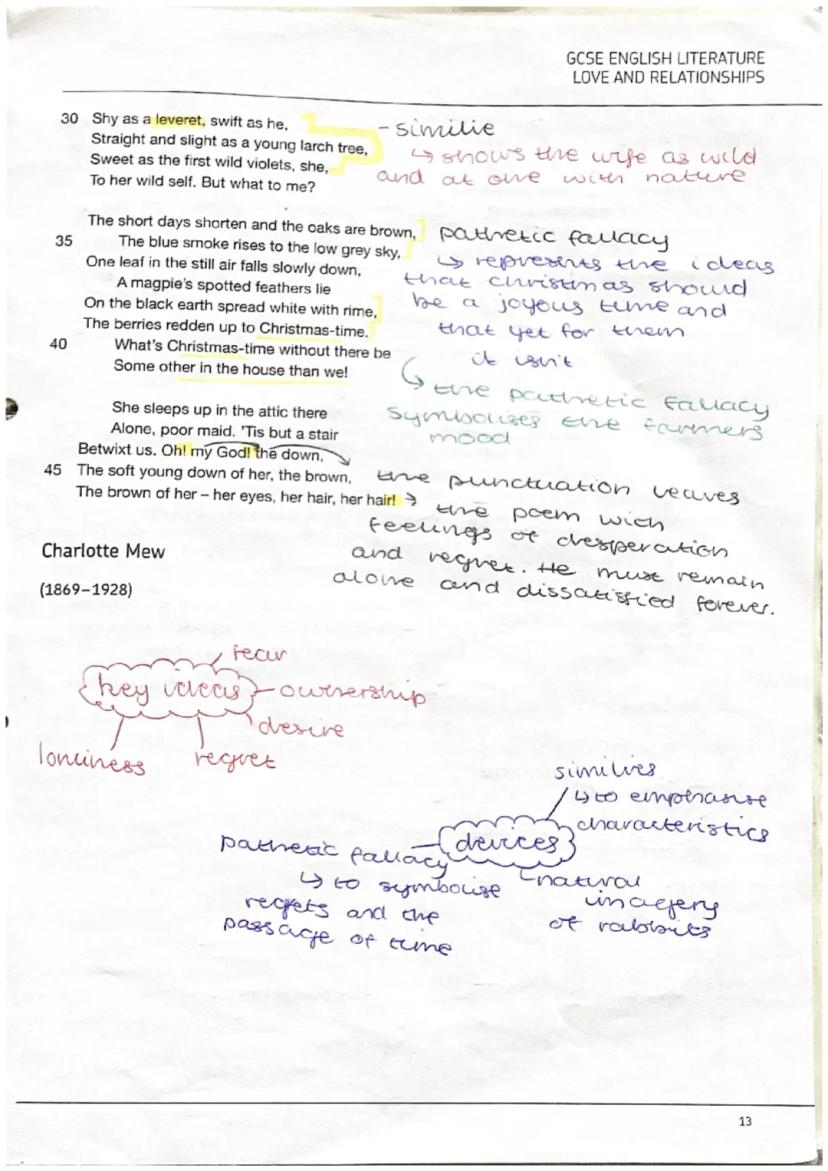 GCSE ENGLISH LITERATURE
LOVE AND RELATIONSHIPS
30 Shy as a leveret, swift as he,
Straight and slight as a young larch tree,
Sweet as the first wild violets, she,
To her wild self. But what to me?
- similie
↳ shows the wife as wild
and at one with nature
The short days shorten and the oaks are brown,
35 The blue smoke rises to the low grey sky,
One leaf in the still air falls slowly down,
A magpie's spotted feathers lie
On the black earth spread white with rime,
The berries redden up to Christmas-time.
40 What's Christmas-time without there be
Some other in the house than we!
pathetic fallacy
↳ represents the ideas
that christmas should
be a joyous time and
that yet for them
it isn't
↳ the pathetic fallacy
symbolises the farmers
mood
She sleeps up in the attic there
Alone, poor maid. 'Tis but a stair
Betwixt us. Oh! my God! the down,
45 The soft young down of her, the brown,
The brown of her – her eyes, her hair, her hair!
→ the punctuation leaves
the poem with
feelings of desperation
and regret. He must remain
alone and dissatisfied forever.
Charlotte Mew
(1869–1928)
key ideas
fear
ownership
desire
regret
lonliness
devices
similies
↳ to emphasise
characteristics
pathetic fallacy
↳ to symbolise
regrets and the
passage of time
natural
imagery
of rabbits
13